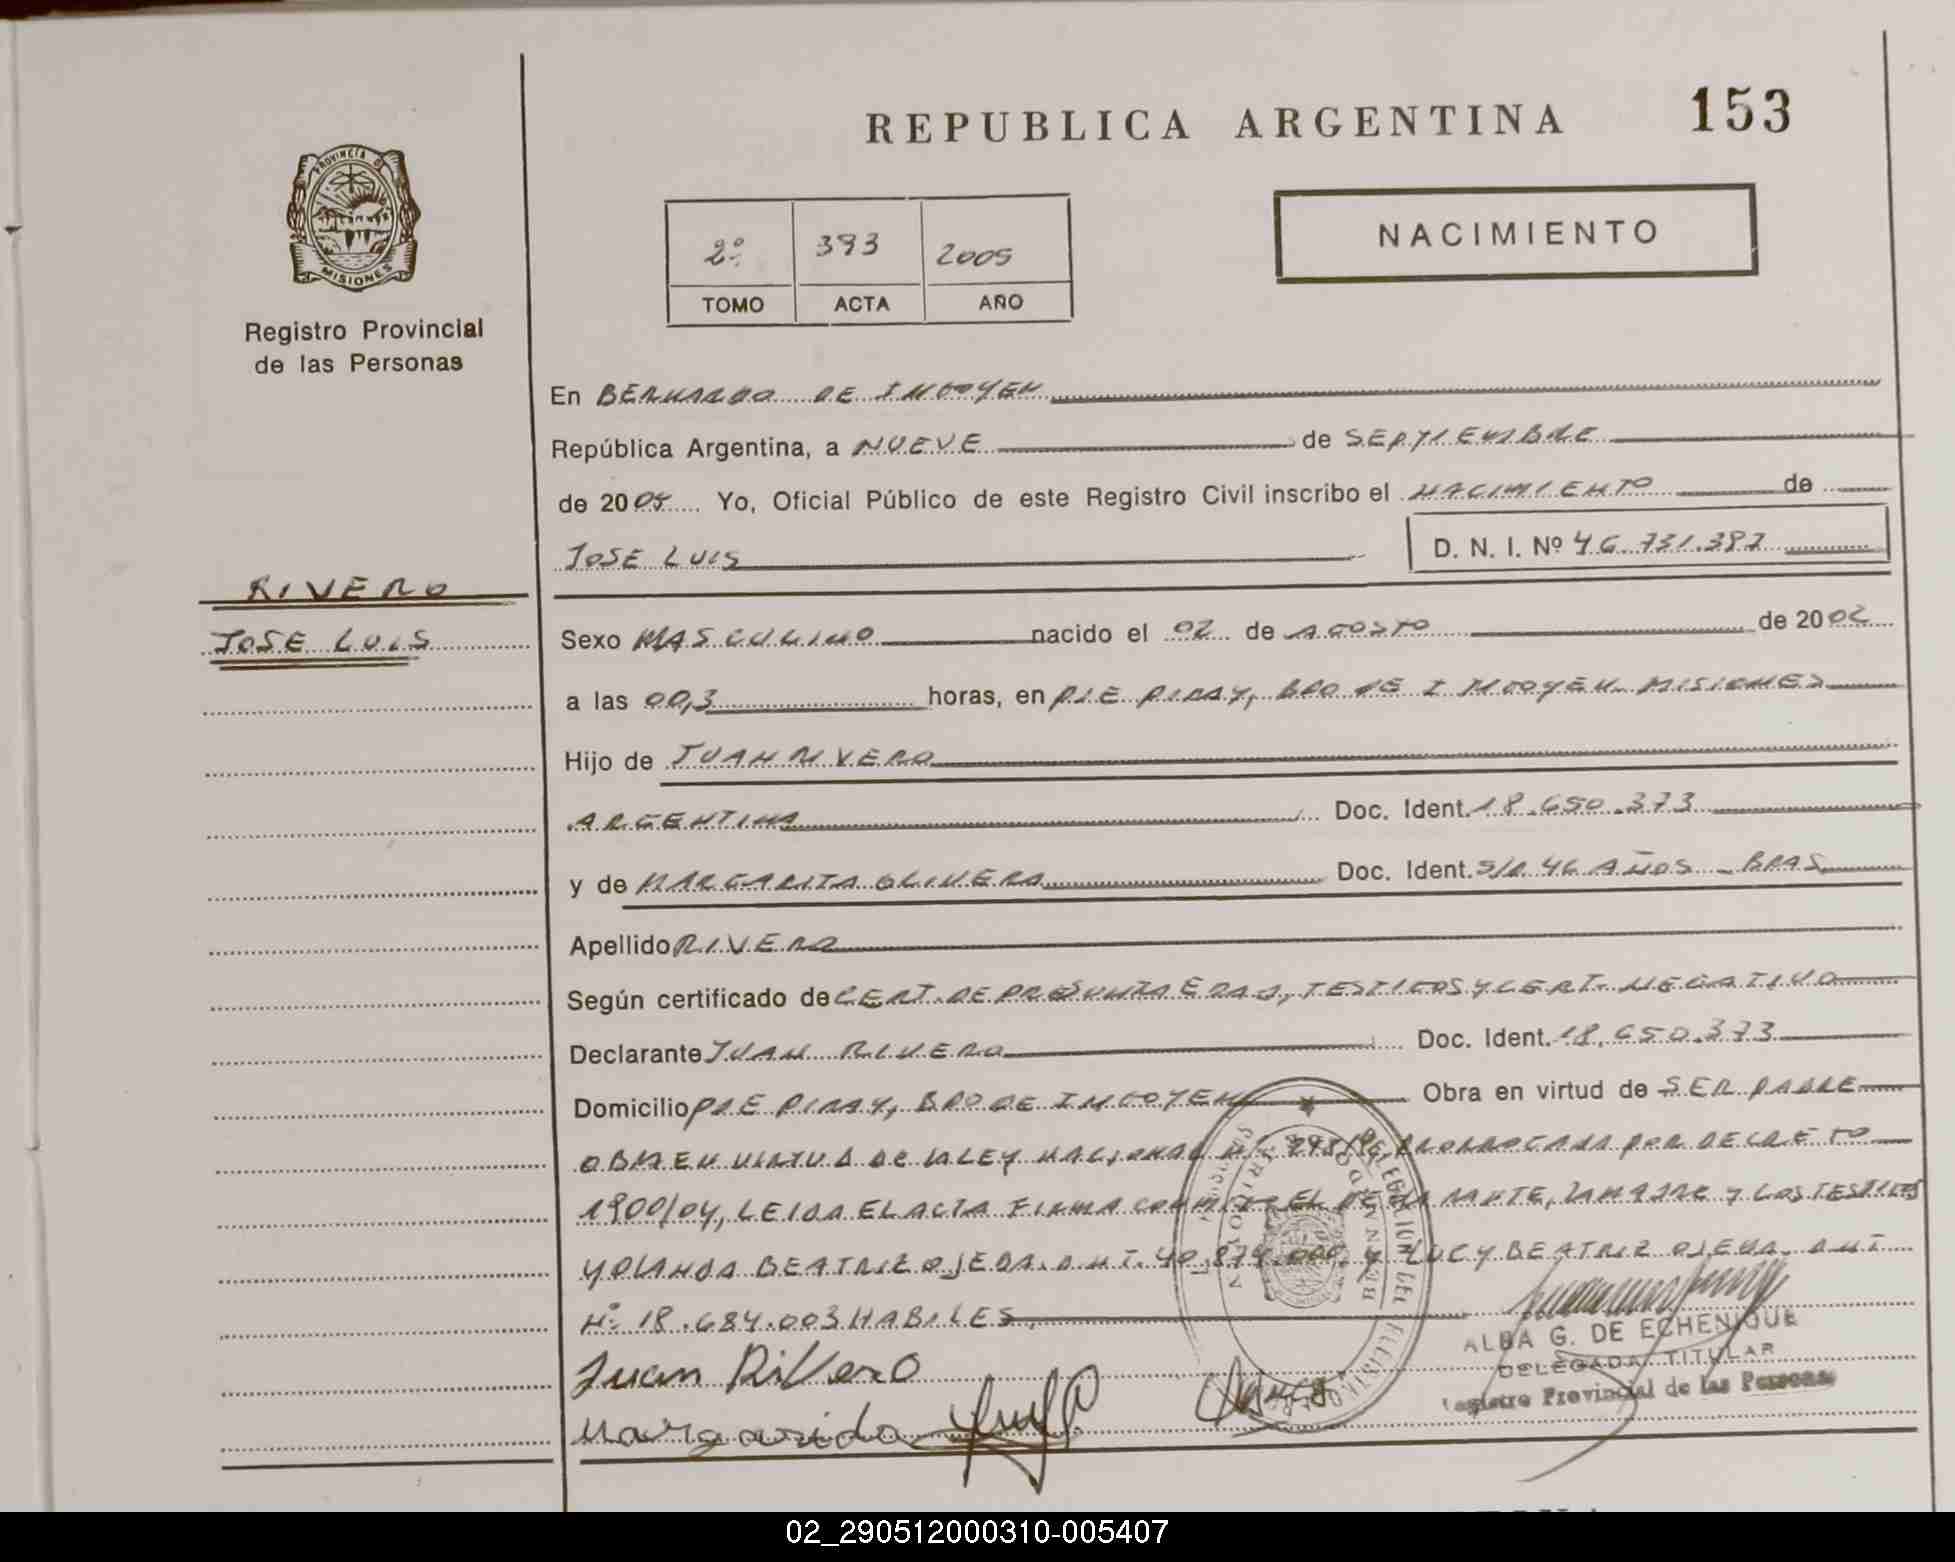 REPUBLICA ARGENTINA 153
PROVINCIA DE
MISIONES
Registro Provincial
de las Personas
2º 393 2005
TOMO ACTA AÑO
NACIMIENTO
En BERNARDO DE IRIGOYEN
República Argentina, a NUEVE de SEPTIEMBRE
de 2005 Yo, Oficial Público de este Registro Civil inscribo el NACIMIENTO de
JOSE LUIS D. N. I. Nº 46.731.387
RIVERO
JOSE LUIS
Sexo MASCULINO nacido el 02 de AGOSTO de 2002
a las 00,3 horas, en PIE PIRAY, BDO DE IRIGOYEN. MISIONES
Hijo de JUAN RIVERO
ARGENTINA Doc. Ident. 18.650.373
y de MARGARITA OLIVERA Doc. Ident. S/D. 46 AÑOS - BRAS
Apellido RIVERO
Según certificado de CERT. DE PRESUNTA EDAD, TESTIGOS Y CERT. NEGATIVO
Declarante JUAN RIVERO Doc. Ident. 18.650.373
Domicilio PIE PIRAY, BDO DE IRIGOYEN Obra en virtud de SER PADRE
OBRA EN VIRTUD DE LA LEY NACIONAL PRORROGADA POR DECRETO
1900/04, LEIDA EL ACTA FIRMA CONMIGO EL DECLARANTE, LA MADRE Y LOS TESTIGOS
YOLANDA BEATRIZ OJEDA. DNI. 40.874.000, Y LUCY BEATRIZ OJEDA. DNI
Nº 18.684.003 HABILES
DELEGACION DEL REGISTRO PROVINCIAL
BERNARDO DE IRIGOYEN
ALBA G. DE ECHENIQUE
DELEGADA TITULAR
Registro Provincial de las Personas
Juan Rivero
Margarida
02_290512000310-005407